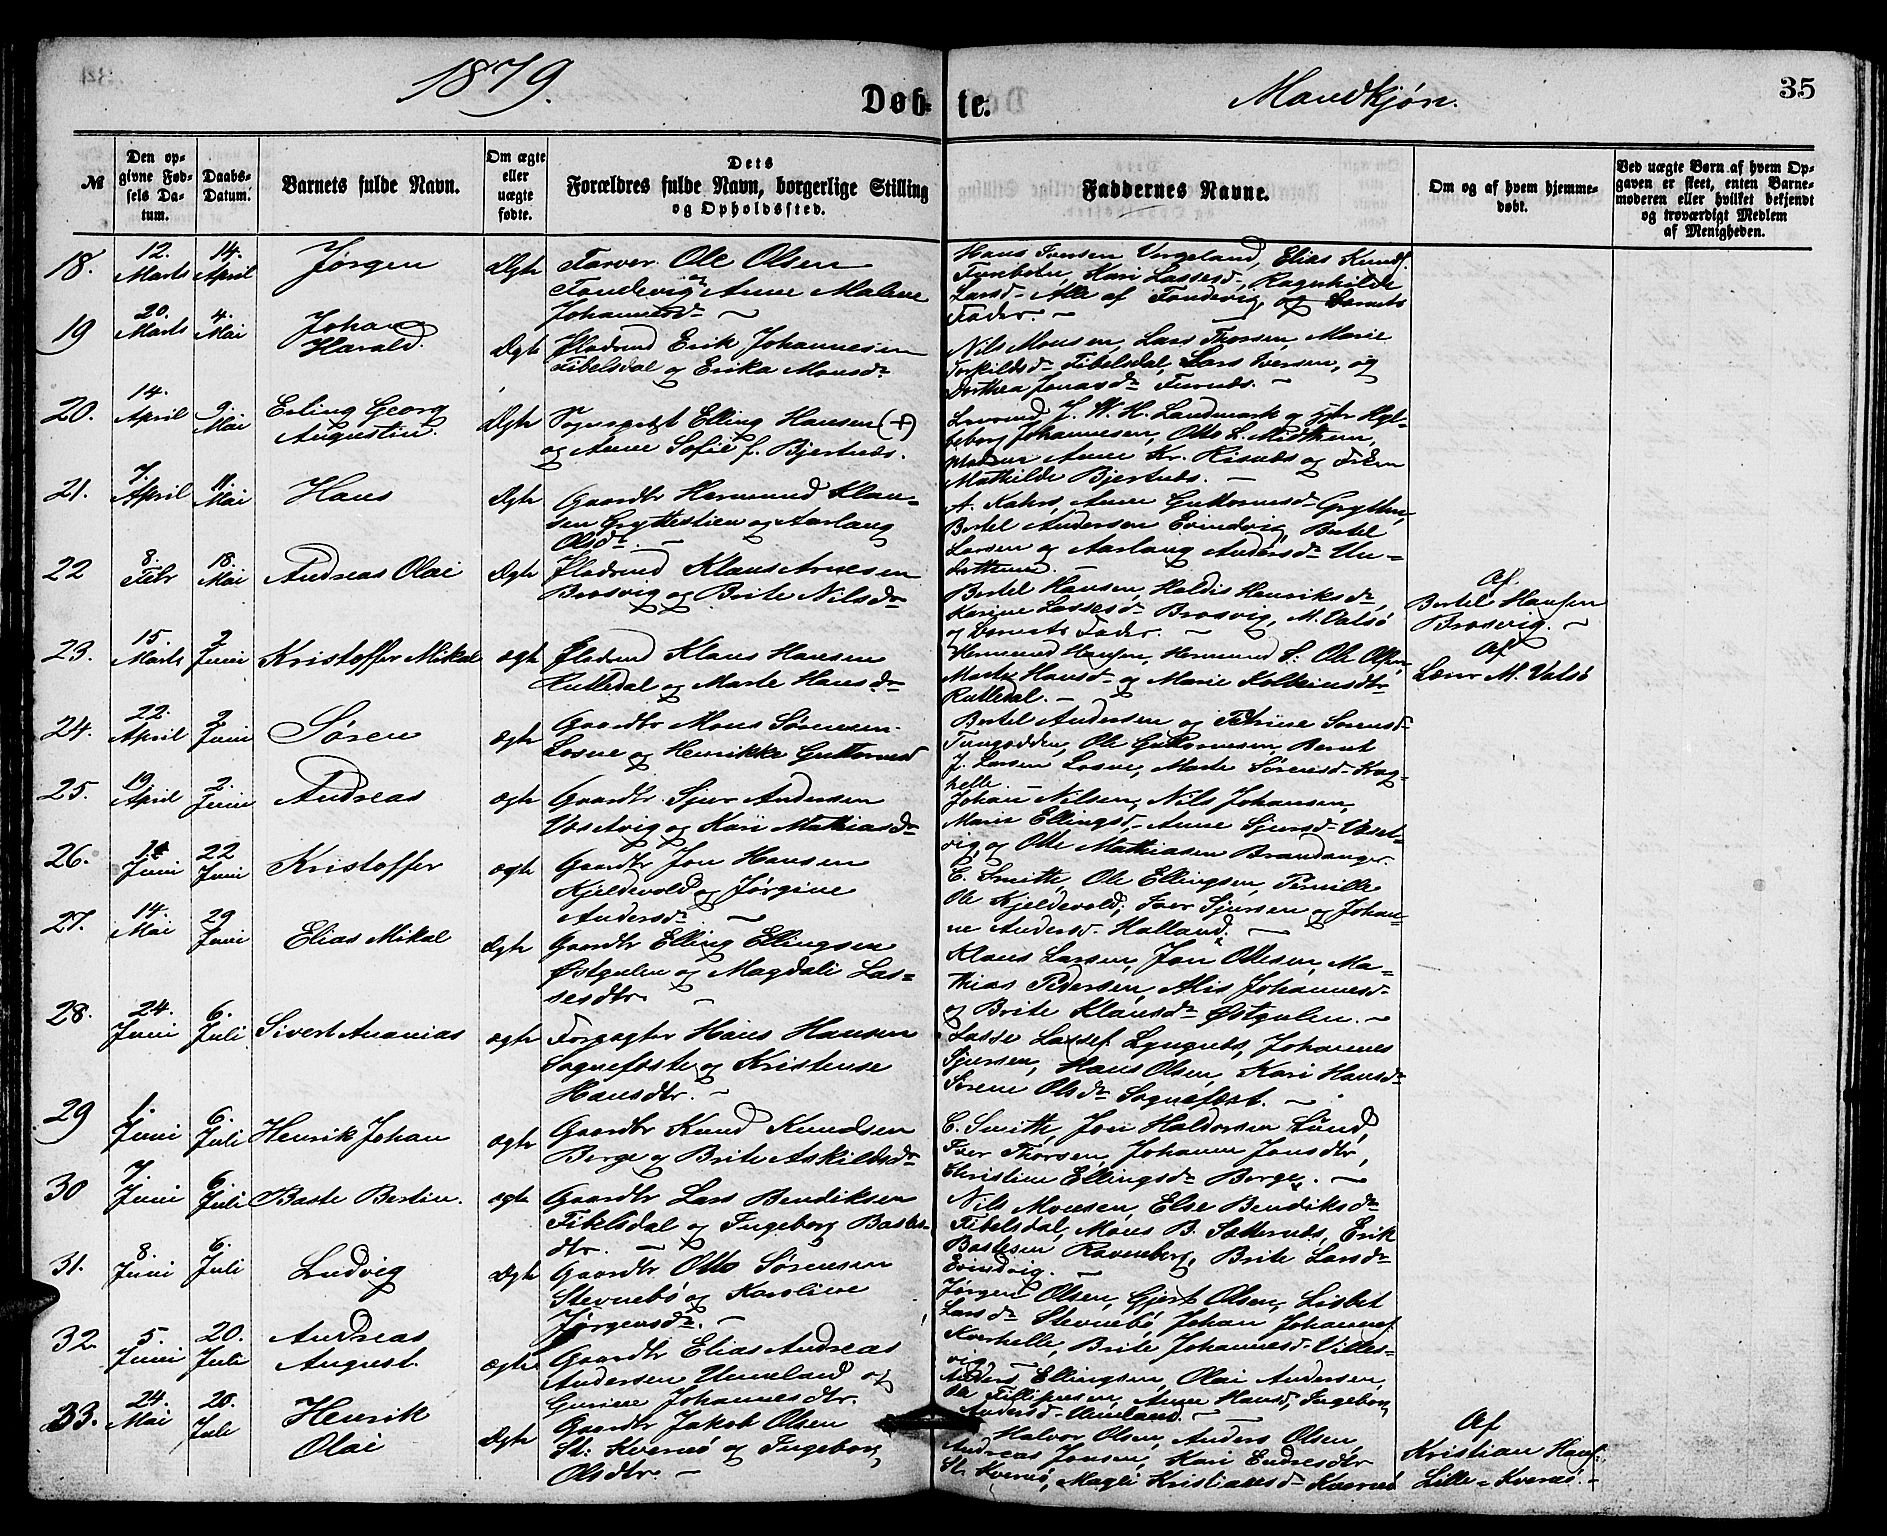 1879.
Døb-te.
Mandkjøn.
35
№
Den op-
givne Fød-
sels Da-
tum.
Daabs-
Datum.
Barnets fulde Navn.
Om ægte
eller
uægte
fødte.
Dets
Forældres fulde Navn, borgerlige Stilling
og Opholdssted.
Faddernes Navne.
Om og af hvem hjemme-
døbt.
Ved uægte Børn af hvem Op-
gaven er skeet, enten Barne-
moderen eller hvilket bekjendt
og troværdigt Medlem
af Menigheden.
18.
12.
Marts
14.
April
Jørgen
Ægte
Farver Ole Olsen
Fondevig og Anne Malene
Johannesdr
Hans Iversen Vergeland, Elias Knuds.
Kari Lassesd., Ragnhilde
Larsd. Alle af Fondevig, og Barnets
Fader.
19
20.
Marts
4.
Mai
Johan
Harald.
Ægte
Pladsmd Erik Johannesen
Tibelsdal og Erika Monsdr
Nils Monsen, Lars Thorsen, Marie
Torkildsdr Tibelsdal, Lars Iversen, og
Dorthea Jonasdr
20.
14.
April
9.
Mai
Erling Georg
Augustin.
Ægte
Sogneprest Elling Hansen (+)
og Anne Sofie f. Bjertnæs.
J. W. H. Landmark og
Johannesen, Otto L. Midthun,
Anne Kr. Risnæs og
Mathilde Bjertnæs.
21.
7.
April
11.
Mai
Hans
Ægte
Gaardbr Hermund Klau-
sen Gryttestien og Aarlaug
Olsdr.
A. Kahrs, Anne Guttormsd. Grytten,
Bertel Andersen Evindvig, Bertel
Larsen og Aarlaug Andersdr
22
8.
Febr
18.
Mai
Andreas Olai
Ægte
Pladsmd Klaus Arnesen
Brosvig og Brite Nilsdr
Bertel Hansen, Haldis Henriksdr,
Karine Lassesdr Brosvig, M. Vatsø
og Barnets Fader.
Af
Bertel Hansen
Brosvig.
23.
15.
Marts
2
Juni
Kristoffer Mikal
ægte
Pladsmd Klaus Hansen
Rutledal og Marte Hansdr
Hermund Hansen, Hermund S. Ole Olsen,
Marte Hansdr og Marie Kolbeinsdtr
Rutledal.
Af
Lærer M. Vatsø
24.
22.
April
2
Juni
Søren
ægte
Gaardbr Mons Sørensen
Losne og Henrikke Guttormsd
Bertel Andersen og Petrine Sørensd.
Tungodden, Ole Guttormsen, Bernt
J. Larsen Losne, Marte Sørensd. Krag-
helle.
25.
19
April
2.
Juni
Andreas
ægte
Gaardbr. Sjur Andersen
Vosetvig og Kari Mathiasdr
Johan Nilsen, Nils Johansen
Marie Ellingsd., Anne Sjursd. Voset-
vig, og Ole Mathiasen Brandanger.
26.
Juni
22
Juni
Kristoffer
ægte
Gaardbr Jon Hansen
Kjeldevold og Jørgine
Andersdr
C. Smith, Ole Ellingsen, Pernille
Ole Kjeldevold, Iver Sjursen og Johan-
ne Andersd. Halland.
27.
14.
Mai
29
Juni
Elias Mikal
Ægte
Gaardbr Elling Ellingsen
Østgulen og Magdali Las-
sesdtr
Klaus Larsen, Jon Olsen, Ma-
thias Pedersen, Alis Johannesd.
og Brite Klausdr Østgulen.
28.
24.
Juni
6.
Juli
Sivert Ananias
ægte
Forpagter Hans Hansen
Sognefæste og Kristense
Hansdtr.
Lasse Lassesen Lyngnæs, Johannes
Sjursen, Hans Olsen, Kari Hansdr
Serene Olsdr Sognefæst.
29
1.
Juni
6.
Juli
Henrik Johan
ægte
Gaardbr Knud Knudsen
Berge og Brite Askildsdr
C. Smith, Jon Haldorsen Sund,
Iver Thorsen, Johanne Jonsdtr,
Christine Ellingsdr Berge.
30
7.
Juni
6.
Juli
Baste Bertin.
ægte
Gaardbr Lars Bendiksen
Tibelsdal og Ingeborg Bastes-
dtr.
Nils Monsen, Else Bendiksdr
Tibelsdal, Mons B. Sætternæs, Erik
Bastesen Ravneberg, Brite Larsdr
Evindvig.
31.
8.
Juni
6.
Juli
Ludvig
Ægte
Gaardbr Otto Sørensen
Stevnebø og Karoline
Jørgensdr.
Jørgen Olsen, Gjert Olsen, Lisbet
Larsdr Stevnebø, Johan Johannes.
Kverhelle, Brite Johannesd. Villes-
vig.
32.
5.
Juni
20.
Juli
Andreas
August.
ægte
Gaardbr Elias Andreas
Andersen Unneland og
Gurine Johannesdtr.
Anders Ellingsen, Olai Andersen,
Ole Fillipusen, Anne Hansd, Ingeborg
Andersd. Unneland.
33.
24.
Mai
20.
Juli
Henrik
Olai
Ægte
Gaardbr Jakob Olsen
St. Kvernø og Ingeborg
Olsdtr.
Halvor Olsen, Anders Olsen,
Andreas Jensen, Kari Endresdtr
St. Kvernø, Magli Kristiansd. Kvernø
Af
Kristian Hans.
Lille-Kvernø.